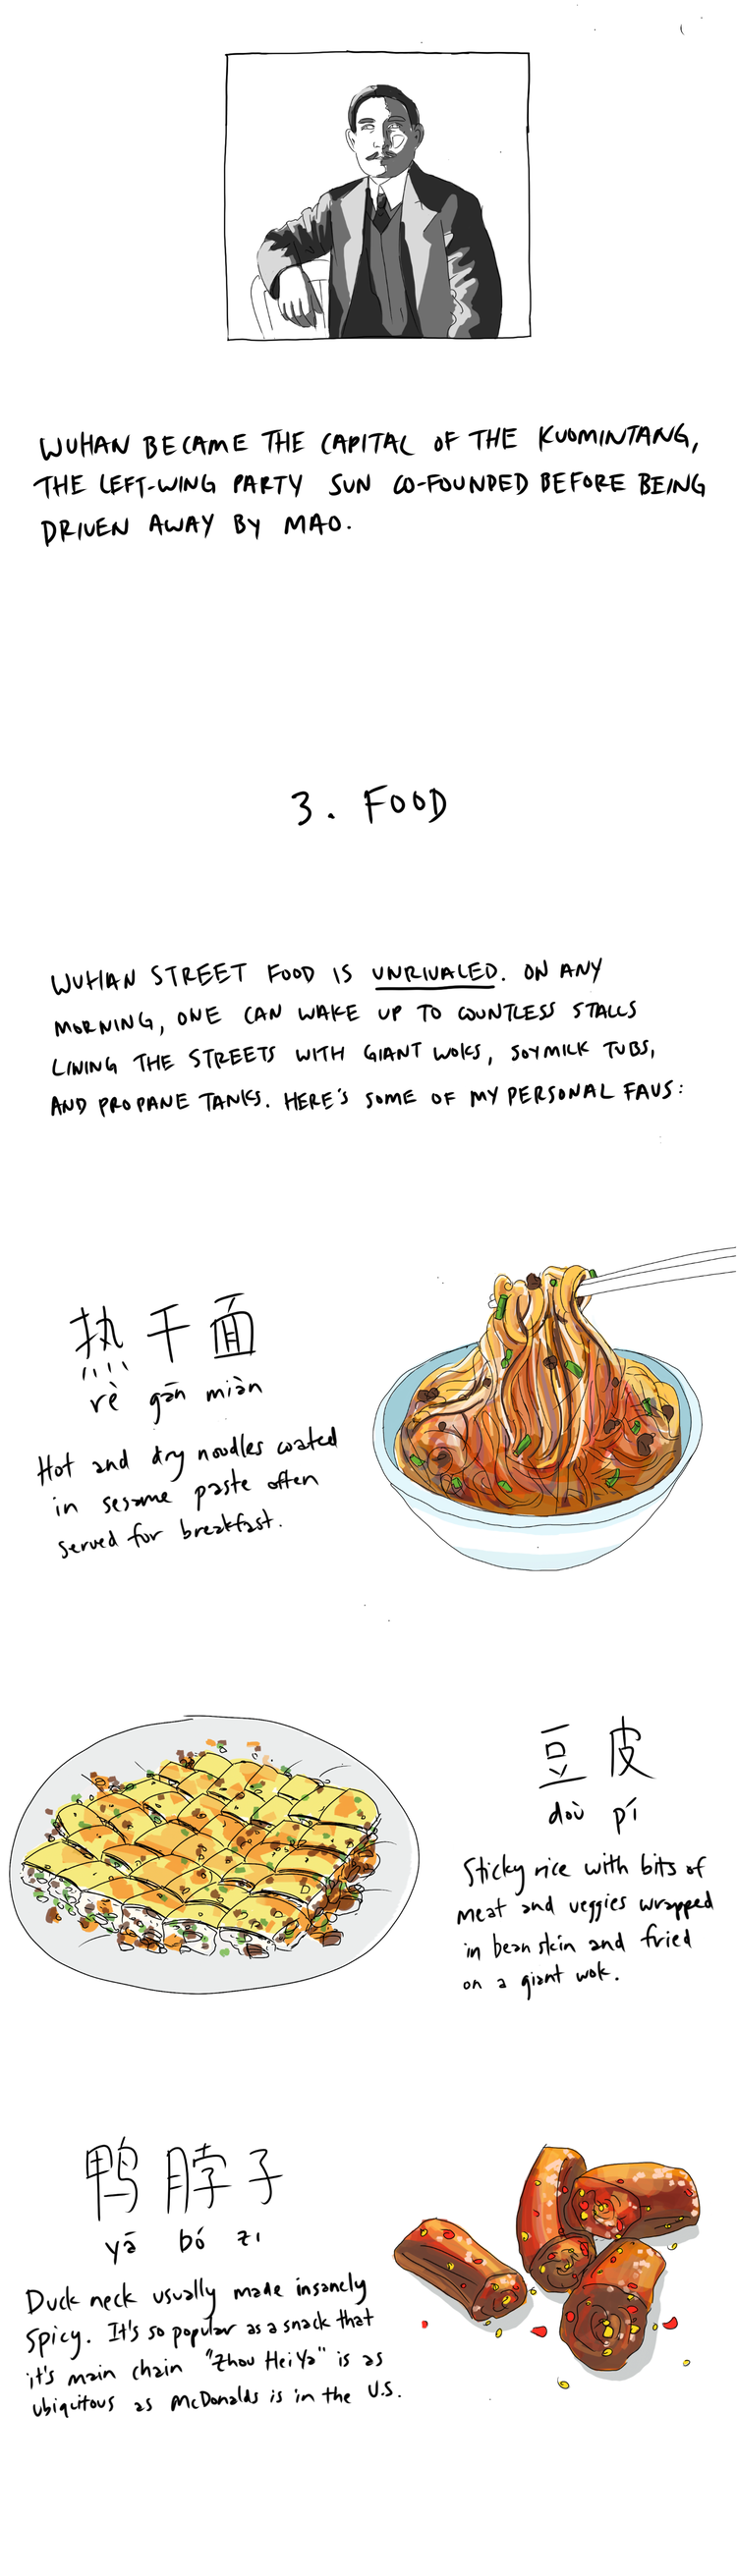 WUHAN BECAME THE CAPITAL OF THE KUOMINTANG,
THE LEFT-WING PARTY SUN CO-FOUNDED BEFORE BEING
DRIVEN AWAY BY MAO.
3. FOOD
WUHAN STREET FOOD IS UNRIVALED. ON ANY
MORNING, ONE CAN WAKE UP TO COUNTLESS STALLS
LINING THE STREETS WITH GIANT WOKS, SOYMILK TUBS,
AND PROPANE TANKS. HERE'S SOME OF MY PERSONAL FAVS:
热干面
rè gān miàn
Hot and dry noodles coated
in sesame paste often
served for breakfast.
豆皮
doù pí
Sticky rice with bits of
meat and veggies wrapped
in bean skin and fried
on a giant wok.
鸭脖子
yā bó zi
Duck neck usually made insanely
spicy. It's so popular as a snack that
it's main chain "Zhou Hei Ya" is as
ubiquitous as McDonalds is in the U.S.